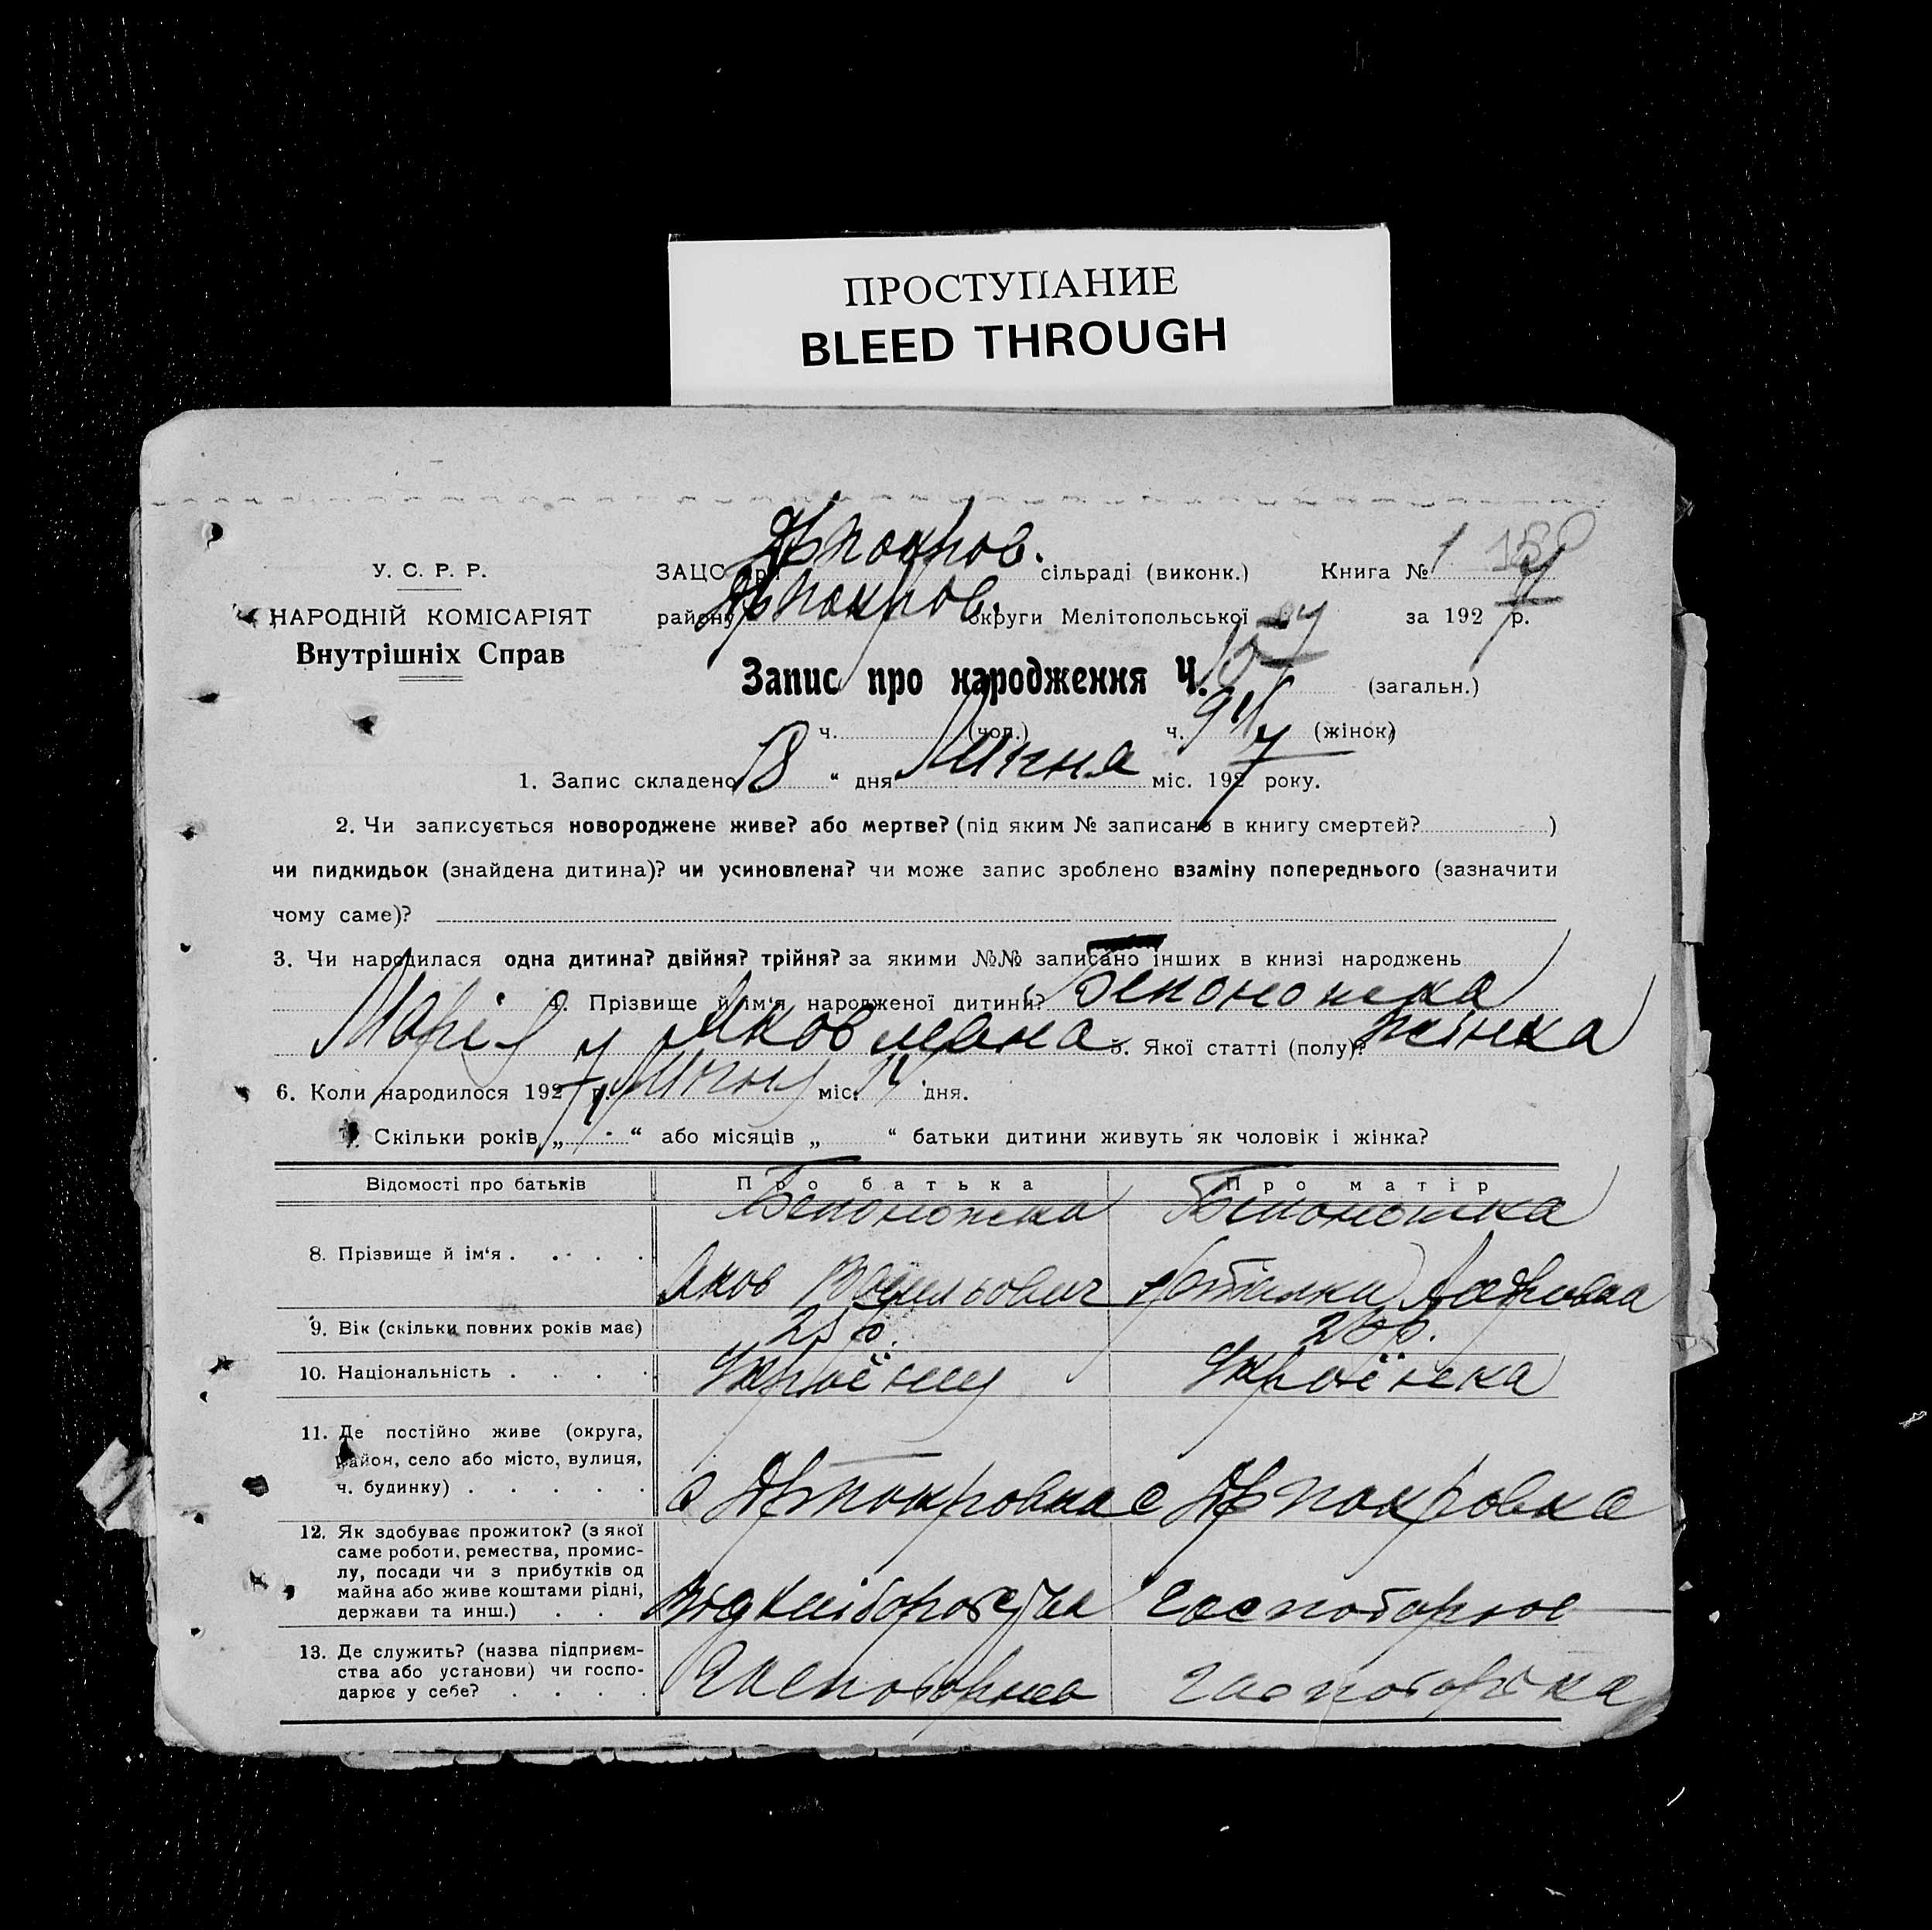 ПРОСТУПАНИЕ
BLEED THROUGH
У. С. Р. Р.
НАРОДНІЙ КОМІСАРІЯТ
Внутрішніх Справ
ЗАЦС при сільраді (виконк.) Книга № 1
району округи Мелітопольської за 1927 р.
Запис про народження Ч. (загальн.)
ч. (чол.) ч. (жінок)
1. Запис складено 18 “ дня Липня міс. 1927 року.
2. Чи записується новороджене живе? або мертве? (під яким № записано в книгу смертей? )
чи пидкидьок (знайдена дитина)? чи усиновлена? чи може запис зроблено взаміну попереднього (зазначити
чому саме)?
3. Чи народилася одна дитина? двійня? трійня? за якими №№ записано інших в книзі народжень
4. Прізвище й ім‘я народженої дитини? Белоножка
Марія Яковлевна 5. Якої статті (полу)? жінка
6. Коли народилося 1927 р. міс. дня.
7. Скільки років „ “ або місяців „ “ батьки дитини живуть як чоловік і жінка?
Відомості про батьків Про батька Про матір
Белоножка Белоножка
8. Прізвище й ім‘я . . . . .
Яков Васильович
9. Вік (скільки повних років має) 25 р. 26 р.
10. Національність . . . . Украінец Украінка
11. Де постійно живе (округа,
район, село або місто, вулиця,
ч. будинку) . . . . .
12. Як здобуває прожиток? (з якої
саме роботи, ремества, промис-
лу, посади чи з прибутків од
майна або живе коштами рідні,
держави та инш.) . . .
13. Де служить? (назва підприєм-
ства або установи) чи госпо-
дарює у себе? . . . .